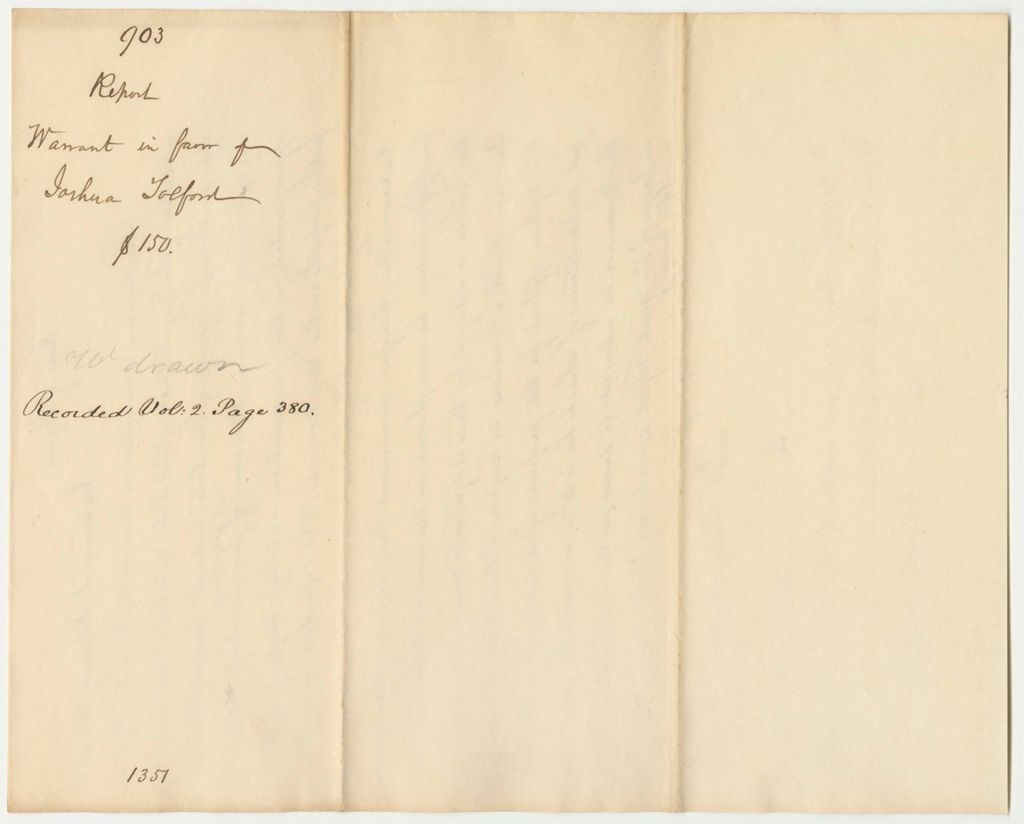 903
Report
Warrant in favor of
Joshua Tolford
$150.
Wt drawn
Recorded Vol: 2. Page 380.
1351